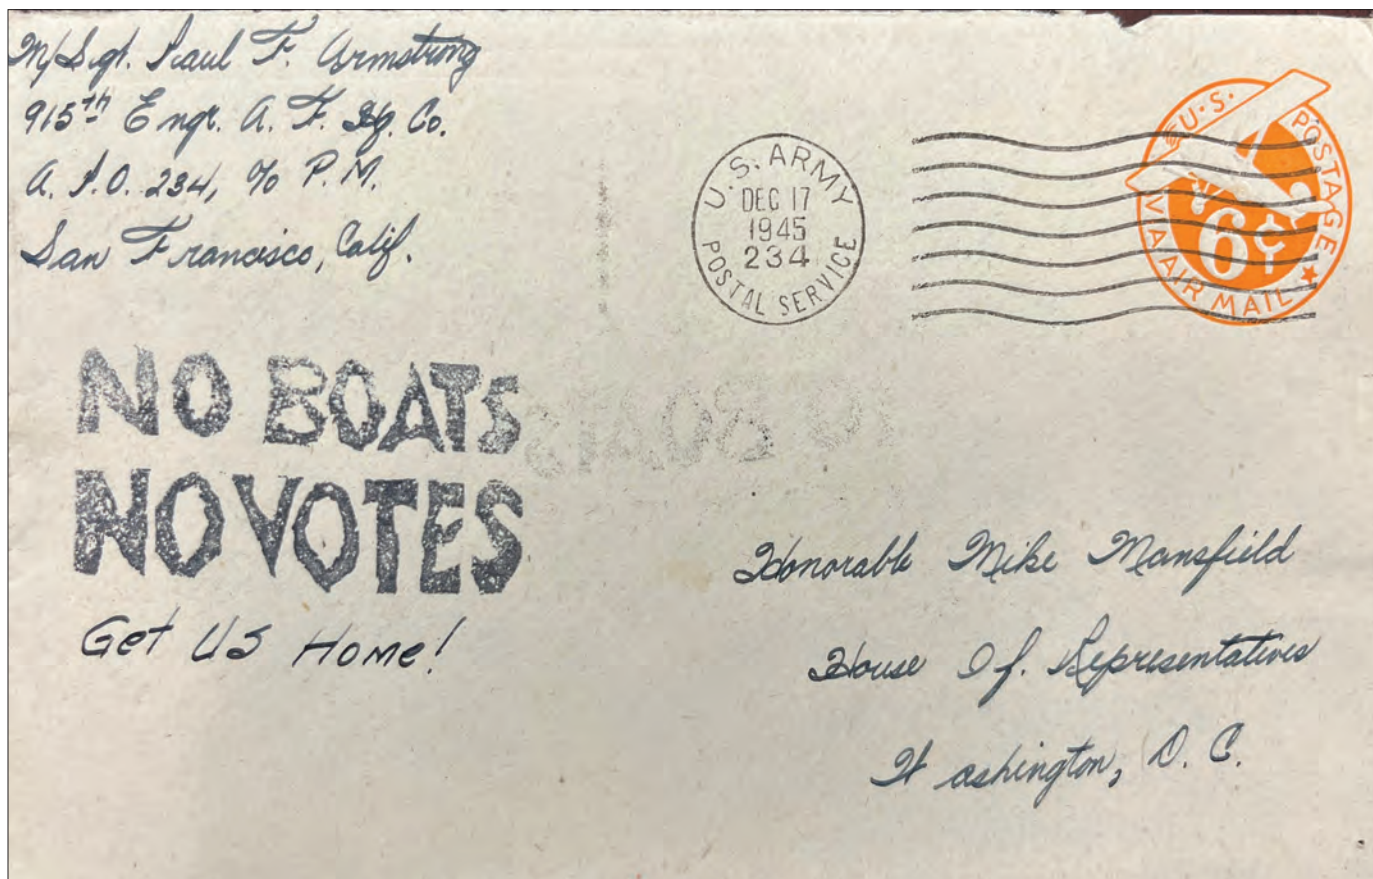 M/Sgt. Paul F. Armstrong
915th Engr. A. F. Hq. Co.
A. P. O. 234, c/o P. M.
San Francisco, Calif.
U.S. ARMY
DEC 17
1945
234
POSTAL SERVICE
U.S. POSTAGE
6¢
VIA AIR MAIL
NO BOATS
NO VOTES
Get US Home!
Honorable Mike Mansfield
House Of. Representatives
Washington, D. C.